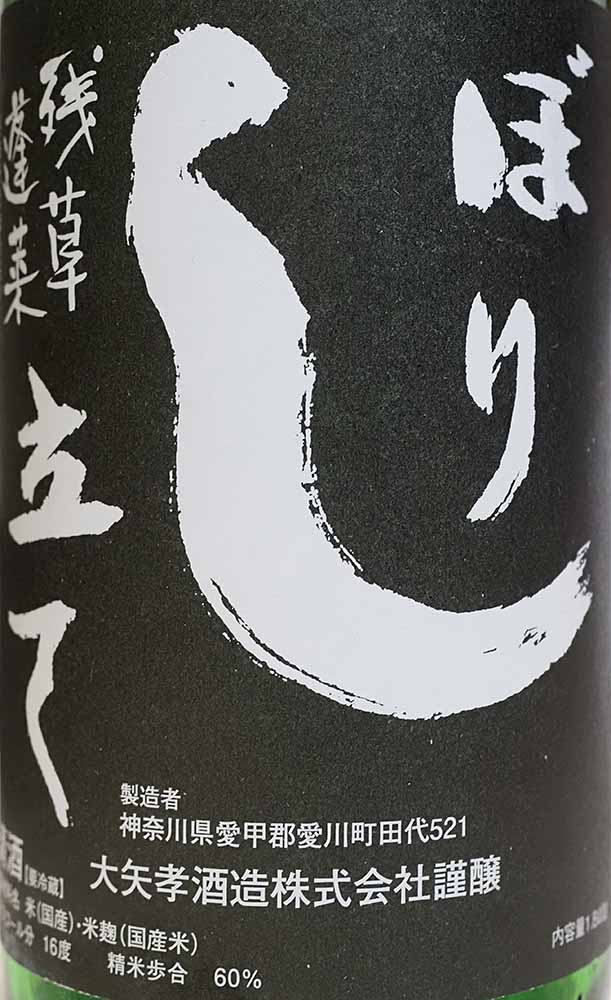 しぼり立て
残草蓬莱
製造者
神奈川県愛甲郡愛川町田代521
大矢孝酒造株式会社謹醸
酒【要冷蔵】
米(国産)・米麹(国産米)
ール分 16度 精米歩合 60%
内容量1.8